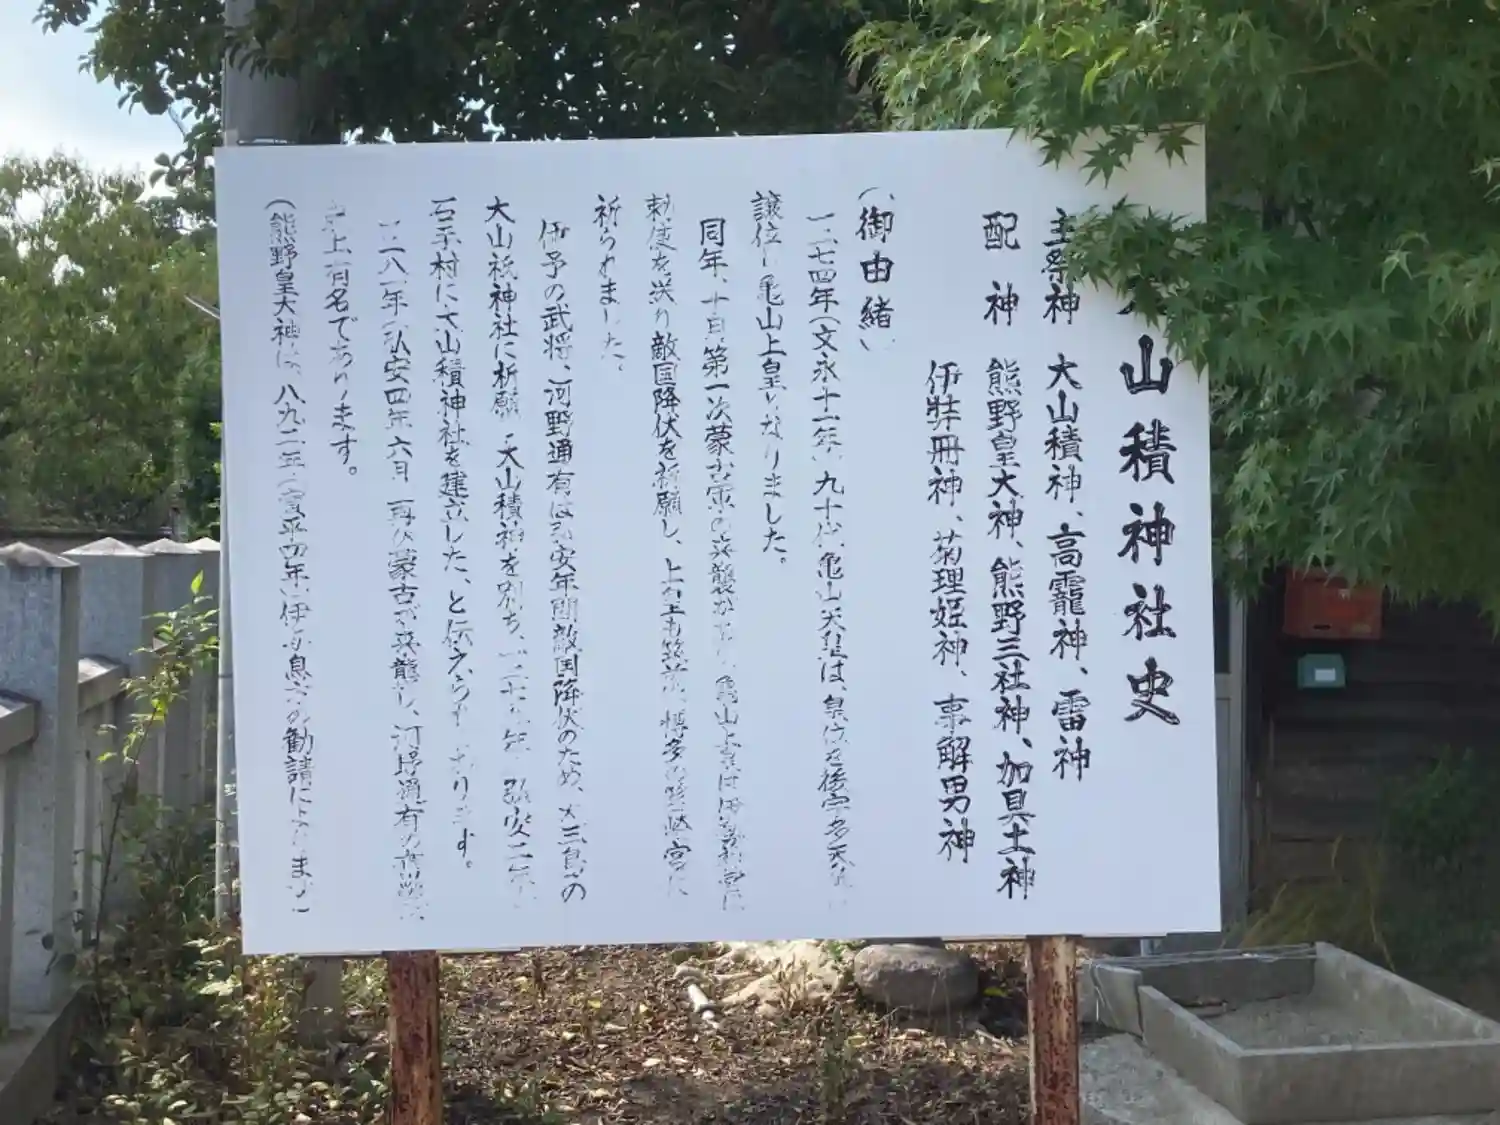 山積神社史
主祭神 大山積神、高龗神、雷神
配神 熊野皇大神、熊野三社神、加具土神
伊弉冊神、菊理姫神、事解男神
(御由緒)
一二七四年(文永十一年)九十代、亀山天皇は、皇位を後宇多天皇に
譲位し亀山上皇となりました。
同年、十月第一次蒙古軍の来襲があり、亀山上皇は伊勢神宮に
勅使を送り敵国降伏を祈願し、上皇も筑前、博多の筥崎宮に
祈られました。
伊予の武将、河野通有は弘安年間敵国降伏のため、大三島の
大山祇神社に祈願 大山積神を別ち、一二七九年 弘安二年
石手村に大山積神社を建立した、と伝えられております。
一二八一年(弘安四年)六月 再び蒙古が来襲し、河野通有の奮戦は
史上有名であります。
(熊野皇大神は、八九二年(寛平四年)伊予息方の勧請によります)